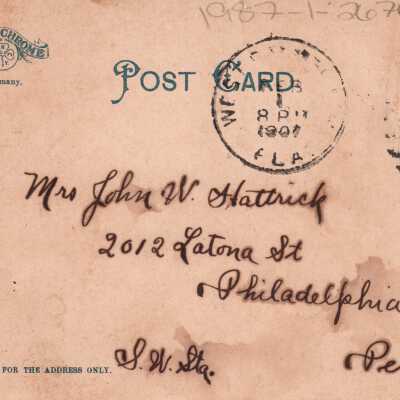 1987-1-267
CHROME
many.
POST CARD
WEST
FEB
1
8 PM
1907
FLA
Mrs John W. Hattrick
2012 Latona St
Philadelphia
S. W. Sta.
Pe
FOR THE ADDRESS ONLY.